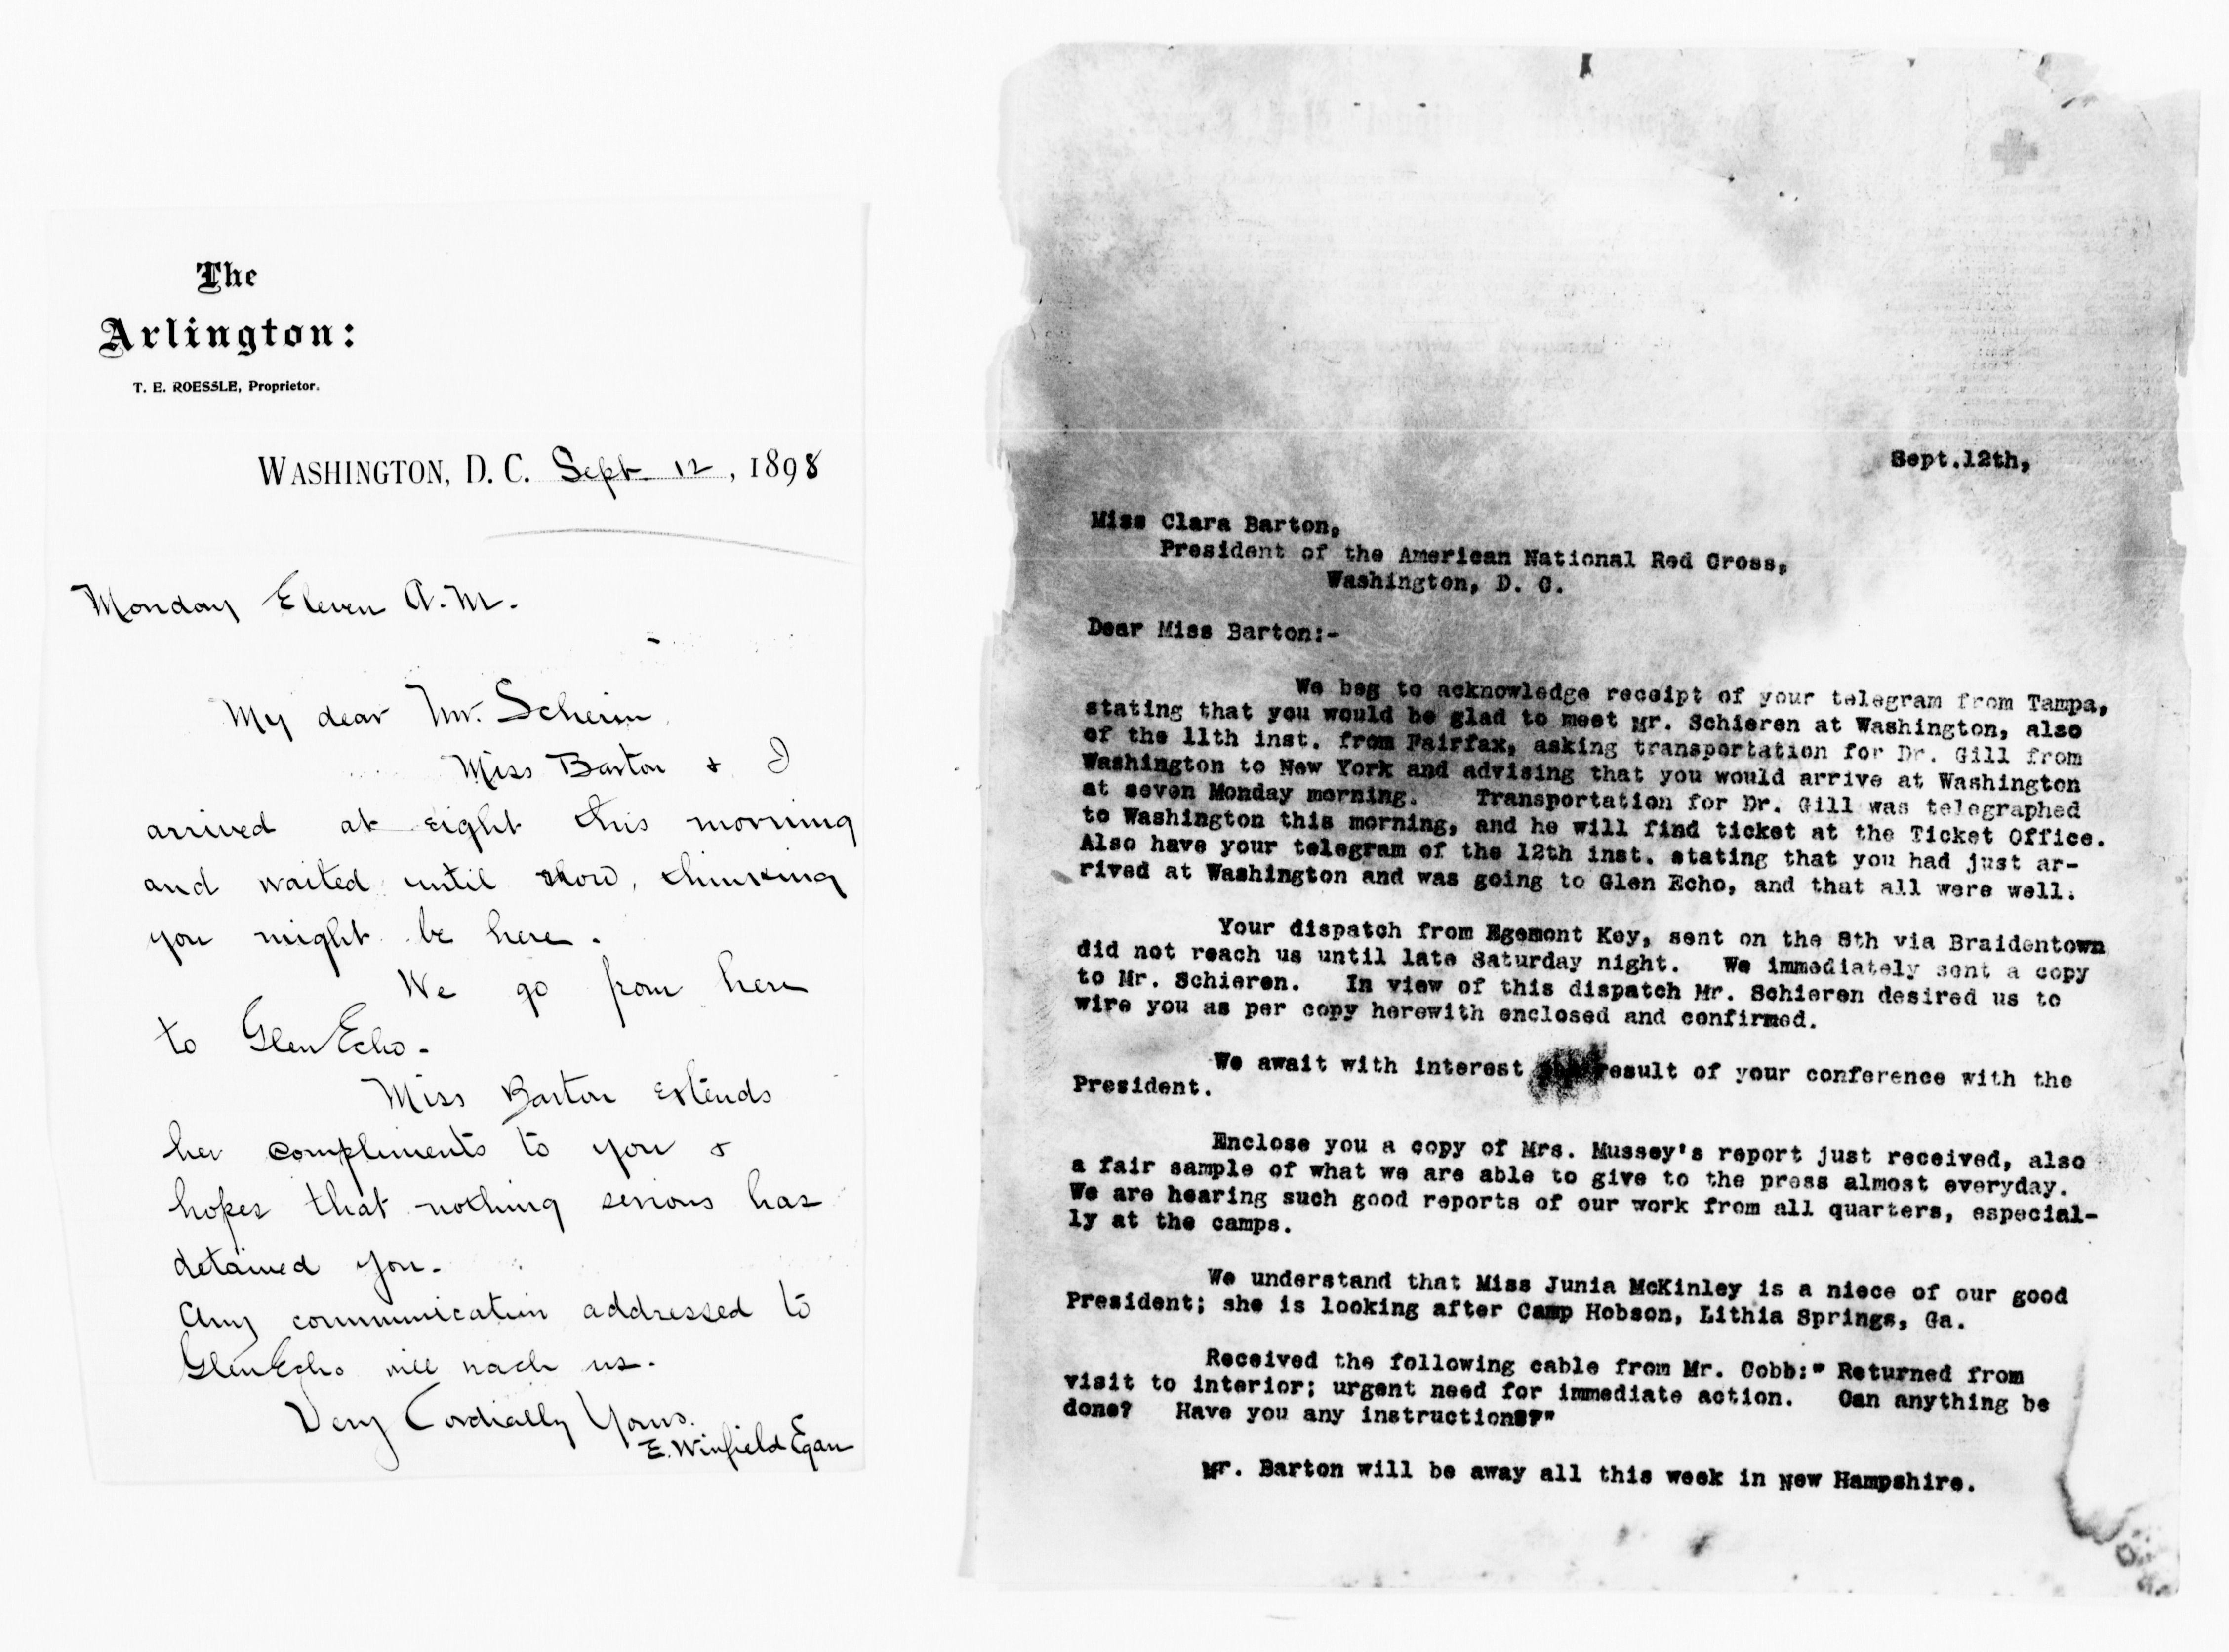 The
Arlington:
T. E. ROESSLE, Proprietor.
WASHINGTON, D. C. Sept 12, 1898
Monday Eleven A.M.
My dear Mr. Scherin,
Miss Barton & I
arrived at eight this morning
and waited until now, thinking
you might be here.
We go from here
to Glen Echo.
Miss Barton extends
her compliments to you &
hopes that nothing serious has
detained you.
Any communication addressed to
Glen Echo will reach us.
Very Cordially Yours.
E. Winfield Egan
Sept.12th,
Miss Clara Barton,
President of the American National Red Cross,
Washington, D. C.
Dear Miss Barton:-
We beg to acknowledge receipt of your telegram from Tampa,
stating that you would be glad to meet Mr. Schieren at Washington, also
of the 11th inst. from Fairfax, asking transportation for Dr. Gill from
Washington to New York and advising that you would arrive at Washington
at seven Monday morning. Transportation for Dr. Gill was telegraphed
to Washington this morning, and he will find ticket at the Ticket Office.
Also have your telegram of the 12th inst. stating that you had just ar-
rived at Washington and was going to Glen Echo, and that all were well.
Your dispatch from Egemont Key, sent on the 8th via Braidentown
did not reach us until late Saturday night. We immediately sent a copy
to Mr. Schieren. In view of this dispatch Mr. Schieren desired us to
wire you as per copy herewith enclosed and confirmed.
We await with interest the result of your conference with the
President.
Enclose you a copy of Mrs. Mussey's report just received, also
a fair sample of what we are able to give to the press almost everyday.
We are hearing such good reports of our work from all quarters, especial-
ly at the camps.
We understand that Miss Junia McKinley is a niece of our good
President; she is looking after Camp Hobson, Lithia Springs, Ga.
Received the following cable from Mr. Cobb:" Returned from
visit to interior; urgent need for immediate action. Can anything be
done? Have you any instructions?"
Mr. Barton will be away all this week in New Hampshire.